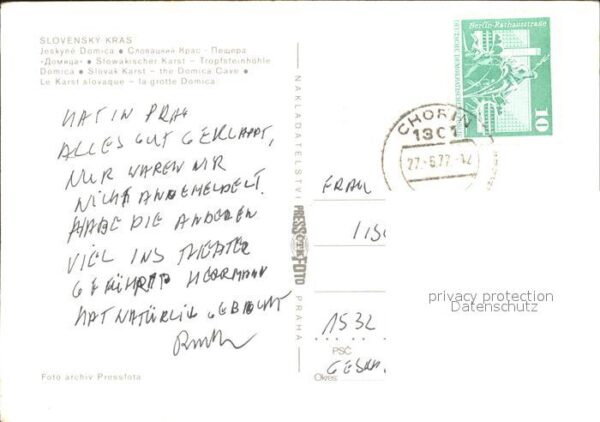 SLOVENSKÝ KRAS
Jeskyně Domica • Словацкий Крас - Пещера
«Домица» • Slowakischer Karst – Tropfsteinhöhle
Domica • Slovak Karst – the Domica Cave •
Le Karst slovaque – la grotte Domica
HAT IN PRAG
ALLES GUT GEKLAPPT,
NUR WAREN WIR
NICHT ANGEMELDET.
HABE DIE ANDEREN
VIEL INS THEATER
GEFÜHRT HERRMANN
HAT NATÜRLIC GEBOCKT
Ruth
Foto archiv Pressfoto
NAKLADATELSTVÍ
PRESSFOTO
PRAHA
Berlin-Rathausstraße
DEUTSCHE DEMOKRATISCHE
10
CHORIN
1301
27.-6.77.-12
FRAU
1532
PSČ
Okres
privacy protection
Datenschutz